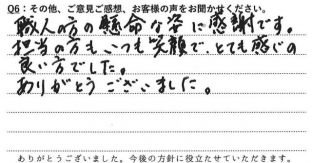 Q6：その他、ご意見ご感想、お客様の声をお聞かせください。
職人の方の懸命な姿に感謝です。
担当の方もいつも笑顔で、とても感じの
良い方でした。
ありがとうございました。
ありがとうございました。今後の方針に役立たせていただきます。